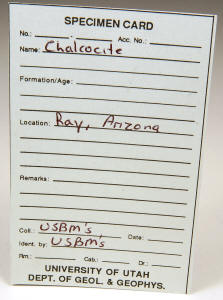 SPECIMEN CARD
No.: - Acc. No.:
Name: Chalcocite
Formation/Age:
Location: Ray, Arizona
Remarks:
Coll.: USBM's Date:
Ident. by: USBMs
Rm.: Cab.: Dr.:
UNIVERSITY OF UTAH
DEPT. OF GEOL. & GEOPHYS.